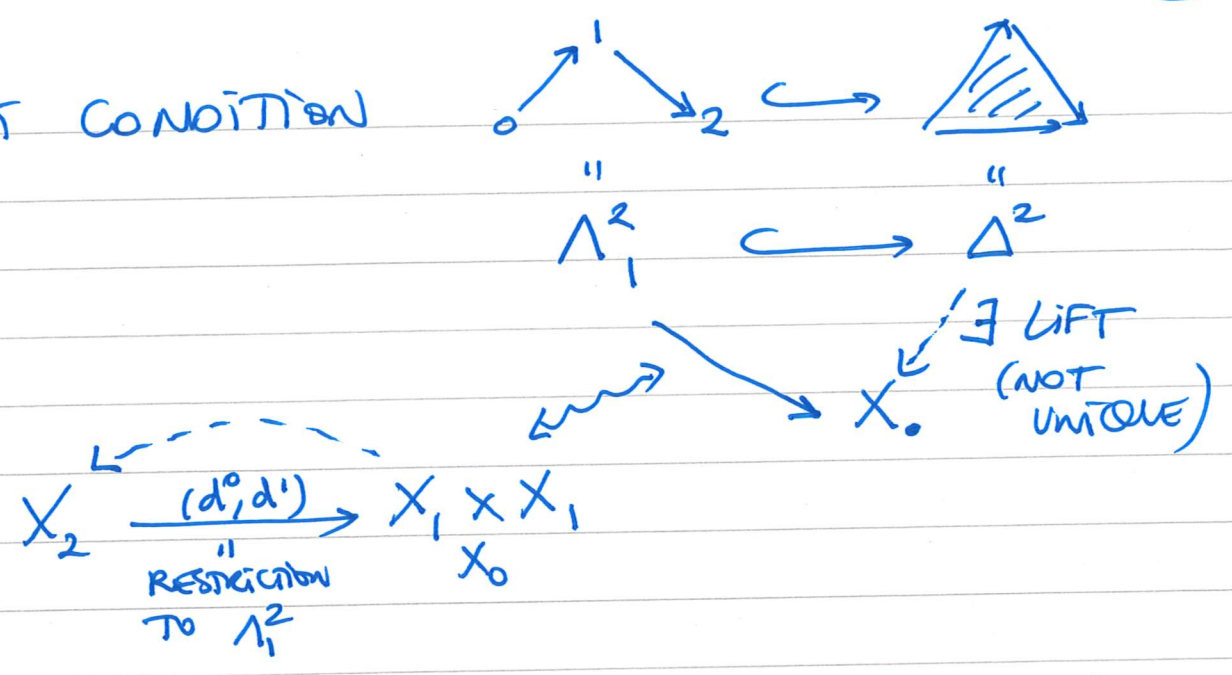 CONDITION
0 1 2 ↪
" "
Λ²₁ ↪ Δ²
∃ LIFT
(NOT
UNIQUE)
X.
X₂ (d⁰,d¹) X₁ × X₁
X₀
"
RESTRICTION
TO Λ²₁